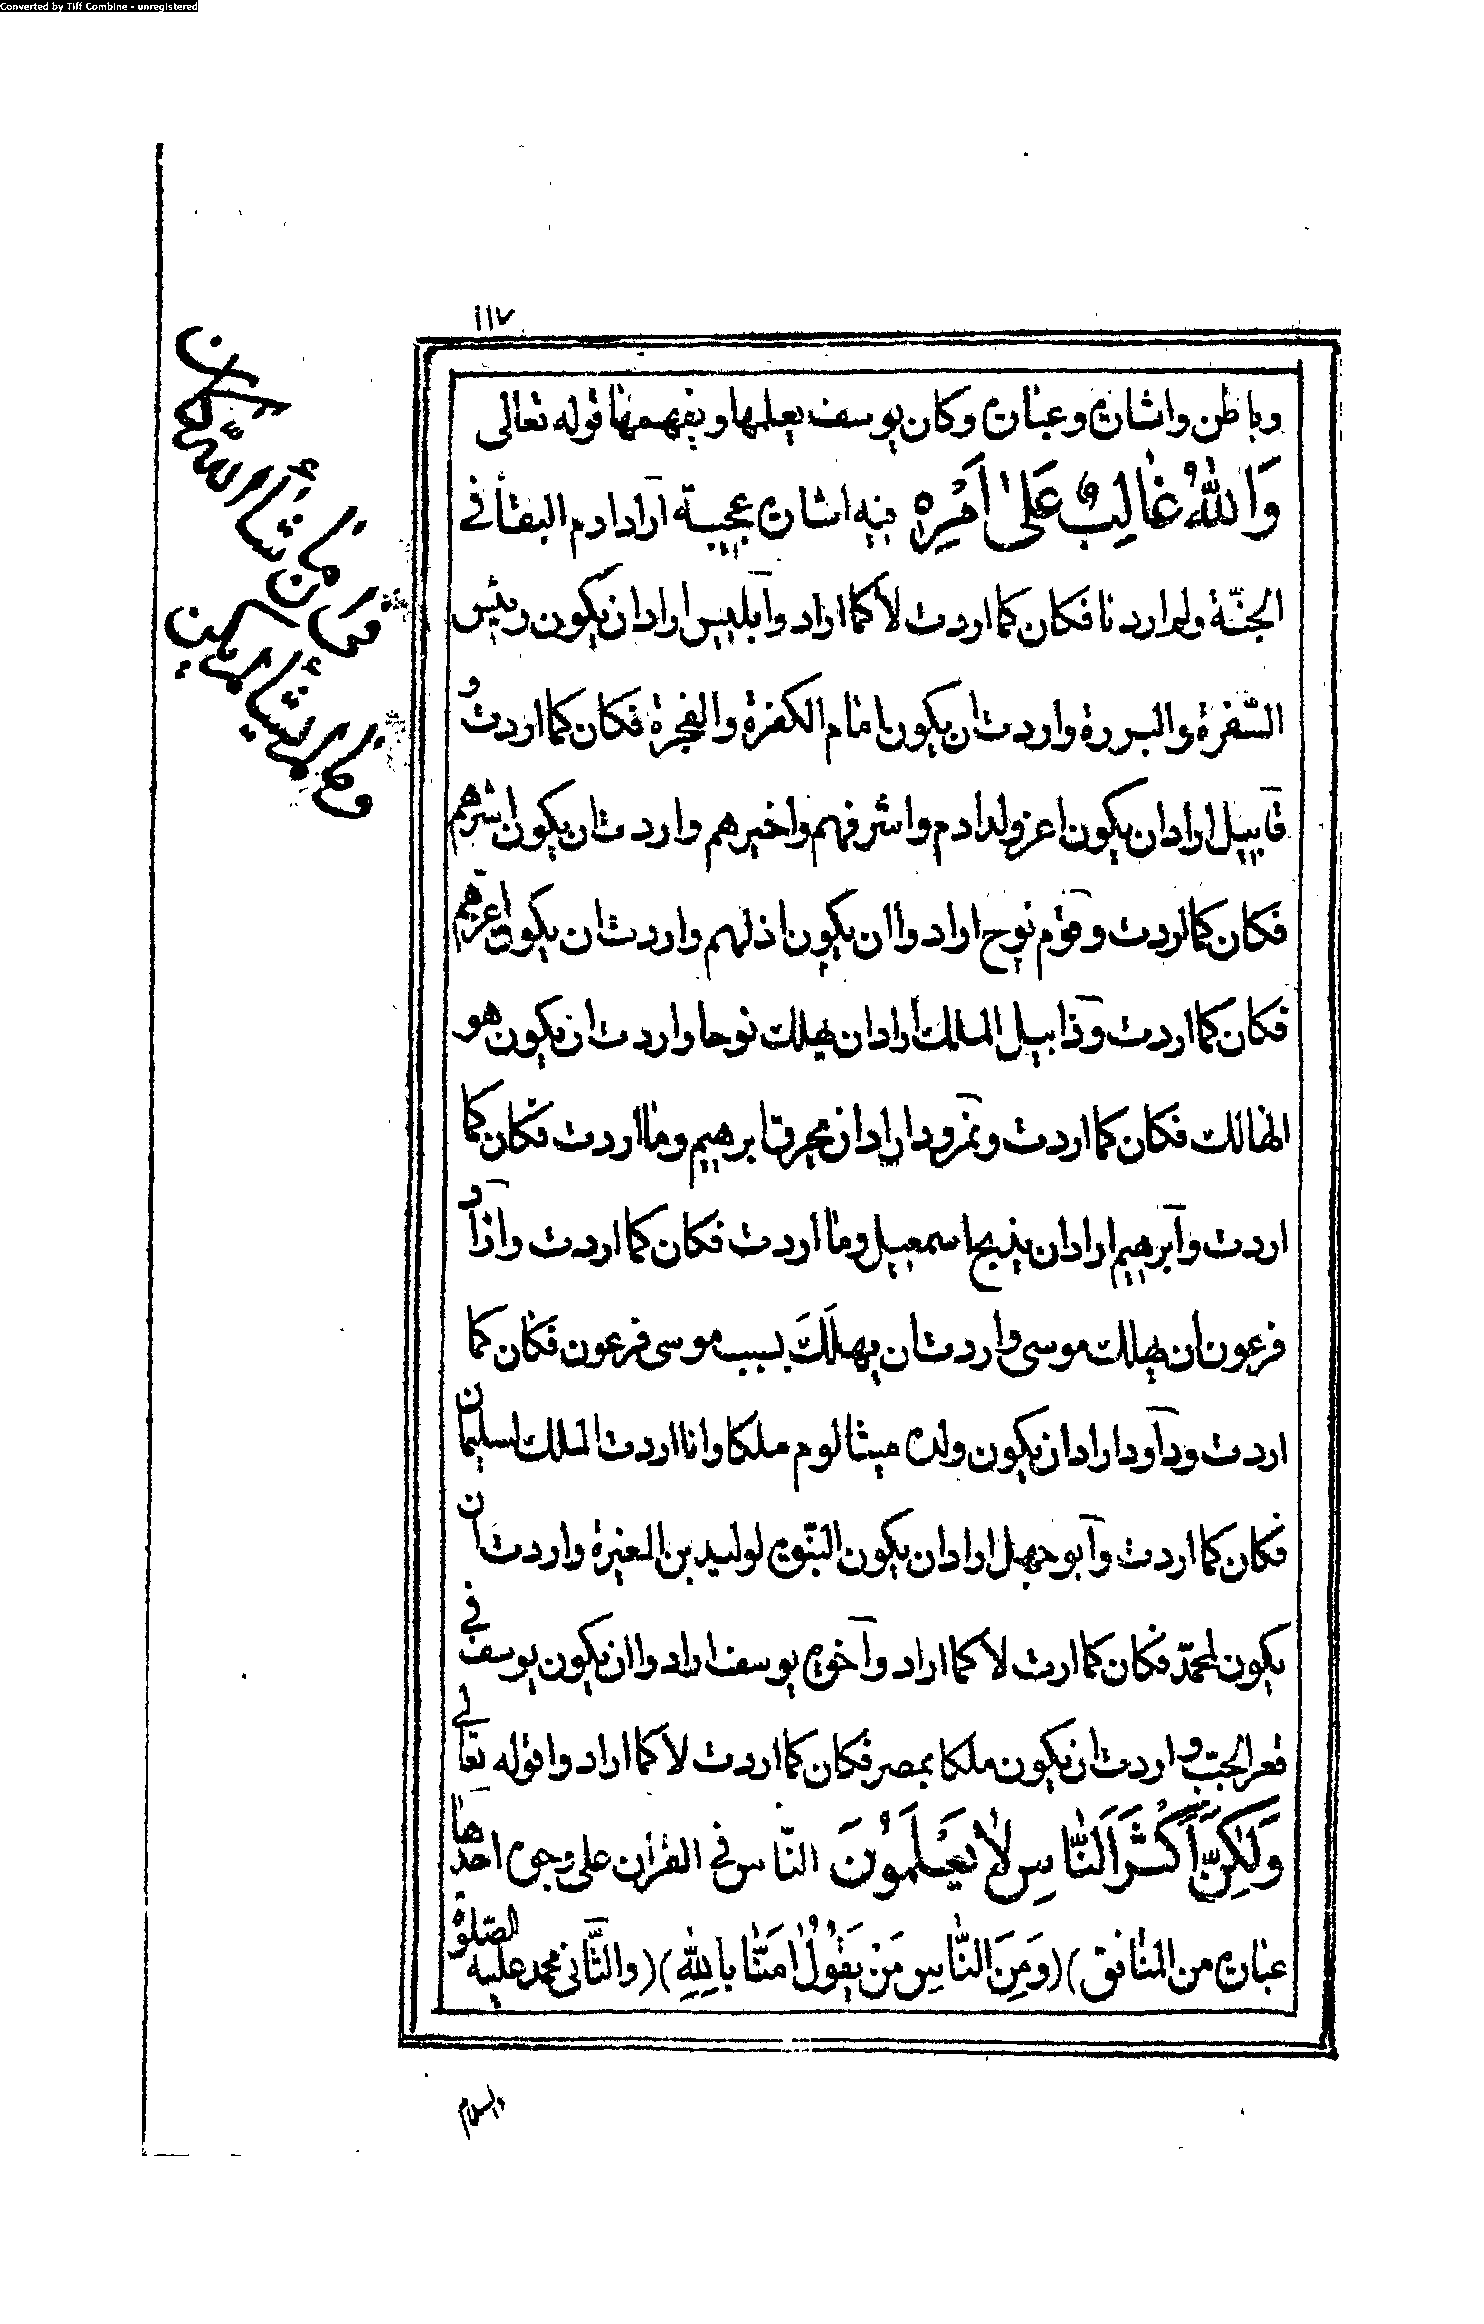 Converted by Tiff Combine - unregistered
١١٧
وباطن واشارة وعبارة وكان يوسف يعلمها ويفهمها قوله تعالى
وَاللّٰهُ غَالِبٌ عَلٰى اَمْرِهِ فيه اشارة عجيبة آراد ادم البقاء في
الجنّة ولم ارد نا فكان كما اردت لا كما اراد وآبليس اراد ان يكون رئيس
السّفرة والبررة واردت ان يكون امام الكفرة والفجرة فكان كما اردت و
قابيل اراد ان يكون اعز ولد ادم واشرفهم واخيرهم واردت ان يكون اشرهم
فكان كما اردت وقوم نوح ارادوا ان يكون اذلهم واردت ان يكون اعزهم
فكان كما اردت وذابيل الملك اراد ان يهلك نوحا واردت ان يكون هو
الهالك فكان كما اردت ونمرود اراد ان يحرق ابرهيم وما اردت فكان كما
اردت وآبرهيم اراد ان يذبح اسمعيل وما اردت فكان كما اردت واراد
فرعون ان يهلك موسى واردت ان يهلك بسبب موسى فرعون فكان كما
اردت وداود اراد ان يكون ولده ميشالوم ملكا وانا اردت الملك لسليمان
فكان كما اردت وآبو جهل اراد ان يكون النبوة لوليد بن المغيرة واردت ان
يكون لمحمّد فكان كما اردت لا كما اراد وآخوة يوسف ارادوا ان يكون يوسف في
قعر الجب واردت ان يكون ملكا بمصر فكان كما اردت لا كما ارادوا قوله تعالى
وَلٰكِنَّ اَكْثَرَ النَّاسِ لَا يَعْلَمُونَ النّاس في القران على وجوه احدها
عبارة من المنافق) (وَمِنَ النَّاسِ مَنْ يَقُولُ اٰمَنَّا بِاللّٰهِ) (والثّاني محمد عليه الصّلوة
والسلام
ما شأ اللّه كان
وما لم يشأ لم يكن